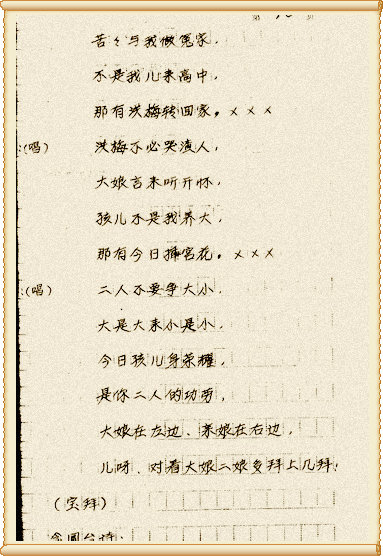 苦々与我做冤家，
不是我儿来高中，
那有洪梅转回家。×××
(唱) 洪梅不必哭渣人，
大娘言来听开怀，
孩儿不是我养大，
那有今日插宫花。×××
(唱) 二人不要争大小，
大是大来小是小，
今日孩儿身荣耀，
是你二人的功劳，
大娘在左边、亲娘在右边，
儿呀、对着大娘二娘多拜上几拜！
(宝拜)
念圆台诗：